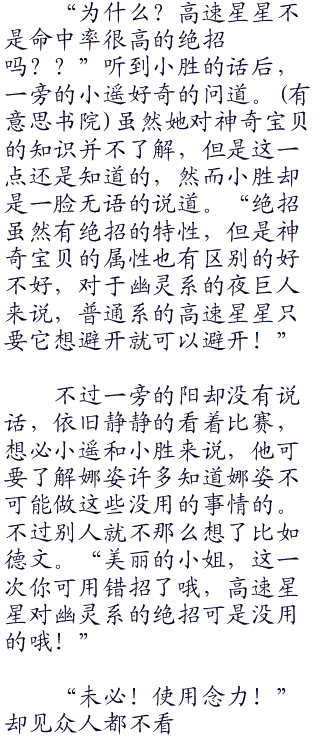 “为什么？高速星星不
是命中率很高的绝招
吗？？”听到小胜的话后，
一旁的小遥好奇的问道。(有
意思书院)虽然她对神奇宝贝
的知识并不了解，但是这一
点还是知道的，然而小胜却
是一脸无语的说道。“绝招
虽然有绝招的特性，但是神
奇宝贝的属性也有区别的好
不好，对于幽灵系的夜巨人
来说，普通系的高速星星只
要它想避开就可以避开！”
不过一旁的阳却没有说
话，依旧静静的看着比赛，
想必小遥和小胜来说，他可
要了解娜姿许多知道娜姿不
可能做这些没用的事情的。
不过别人就不那么想了比如
德文。“美丽的小姐，这一
次你可用错招了哦，高速星
星对幽灵系的绝招可是没用
的哦！”
“未必！使用念力！”
却见众人都不看